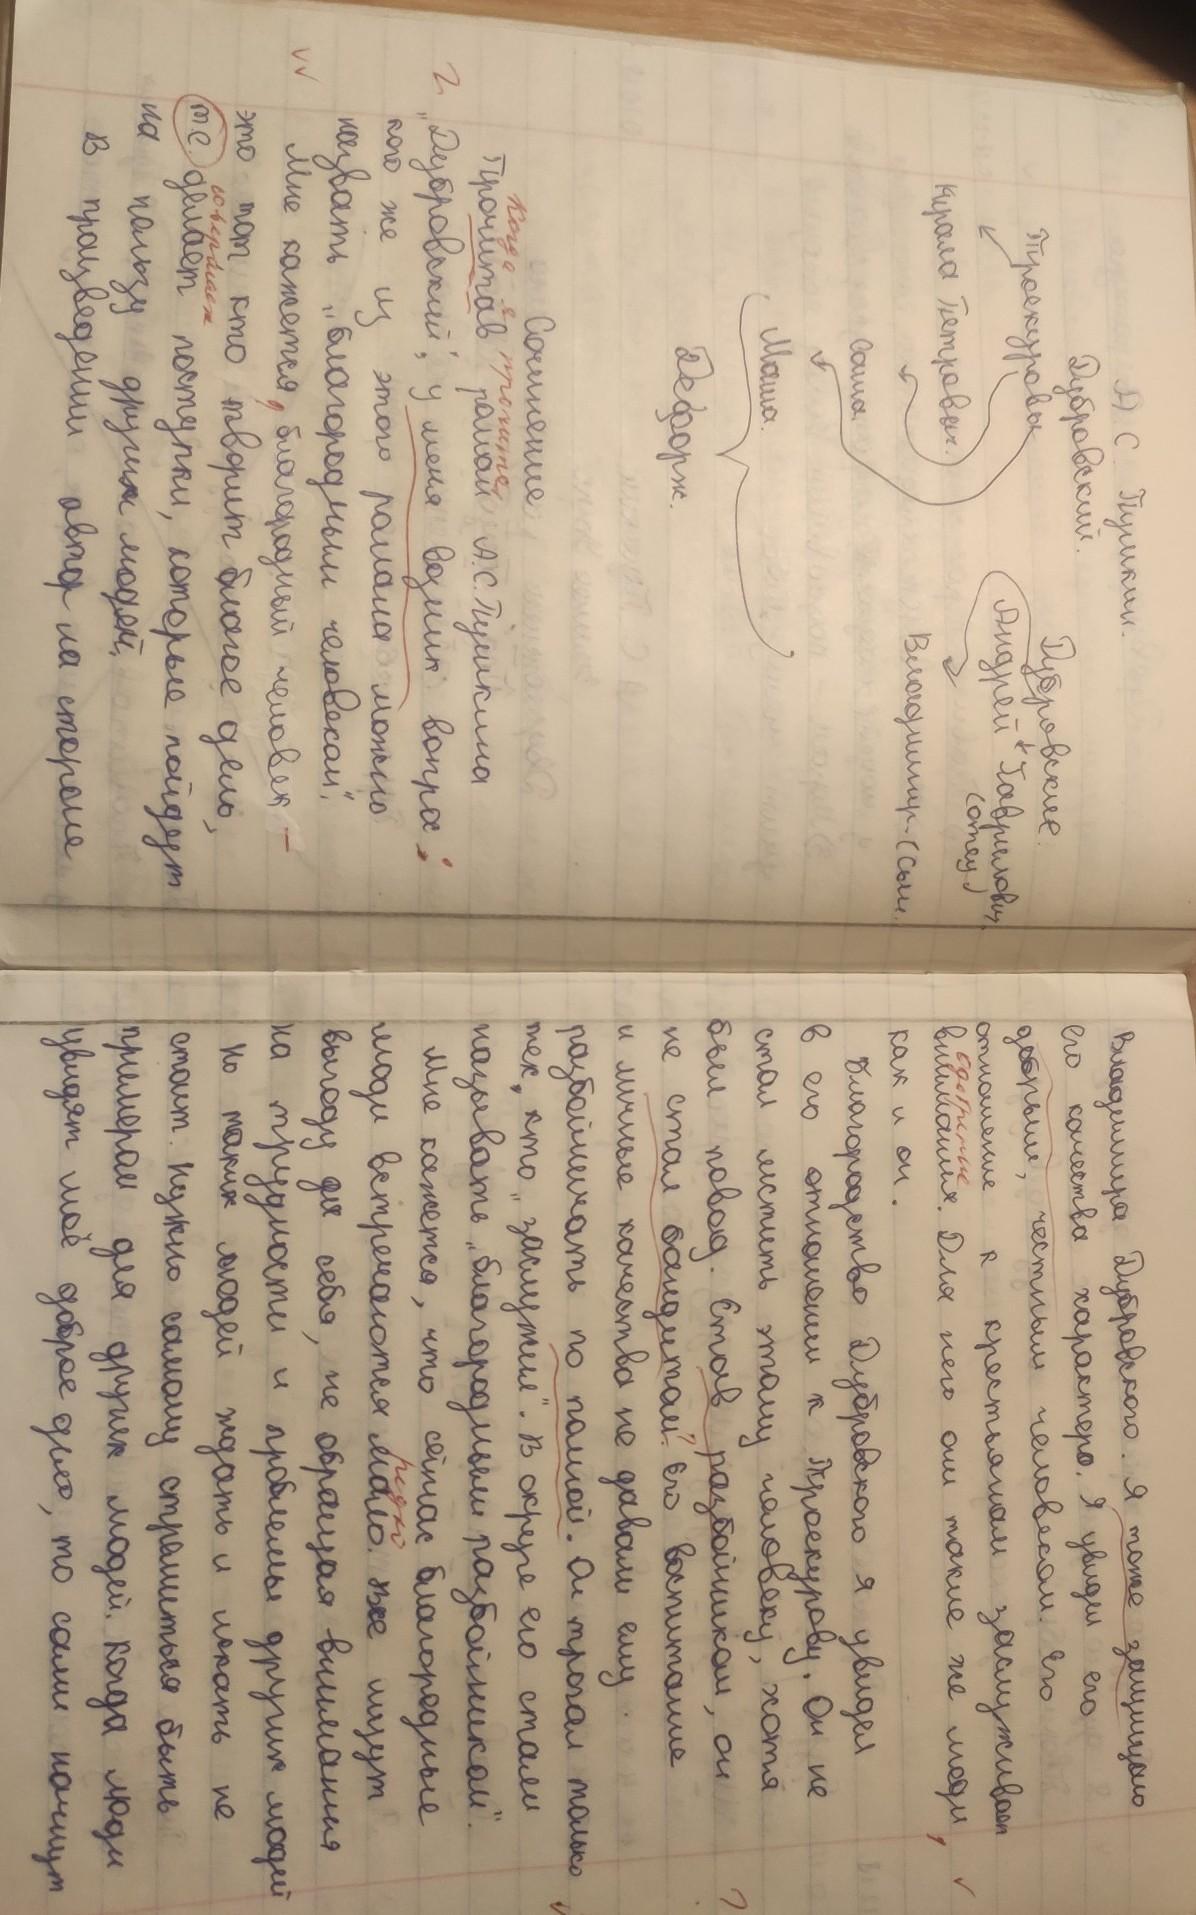 А. С. Пушкин.
Дубровский.
Троекуровы
Дубровские.
Кирила Петрович.
Андрей Гаврилович
(отец)
Саша
Владимир-(сын.
Маша.
Дефорж.
Сочинение.
Когда я прочитал
Прочитав роман А.С. Пушкина
„Дубровский", у меня возник вопрос:
кого же из этого романа можно
назвать „благородным человеком".
Мне кажется, благородный человек –
это тот кто творит благое дело,
т.е. делает поступки, которые пойдут
совершает
на пользу других людей.
В произведении автор на стороне
Владимира Дубровского. Я тоже защищаю
его качества характера. Я увидел его
добрым, честным человеком. Его
отношение к крестьянам заслуживает
внимания. Для него они такие же люди,
как и он.
Благородство Дубровского я увидел
в его отношении к Троекурову. Он не
стал мстить этому человеку, хотя
был повод. Став разбойником, он
не стал бандитом". Его воспитание
и личные качества не давали ему
разбойничать по полной. Он трогал только
тех, кто „заслужил". В округе его стали
называть „благородным разбойником".
Мне кажется, что сейчас благородные
люди встречаются мало. Все ищут
редко
выгоду для себя, не обращая внимания
на трудности и проблемы других людей
Но таких людей ждать и искать не
стоит. Нужно самому стремиться быть
примером для других людей. Когда люди
увидят твоё доброе дело, то сами начнут